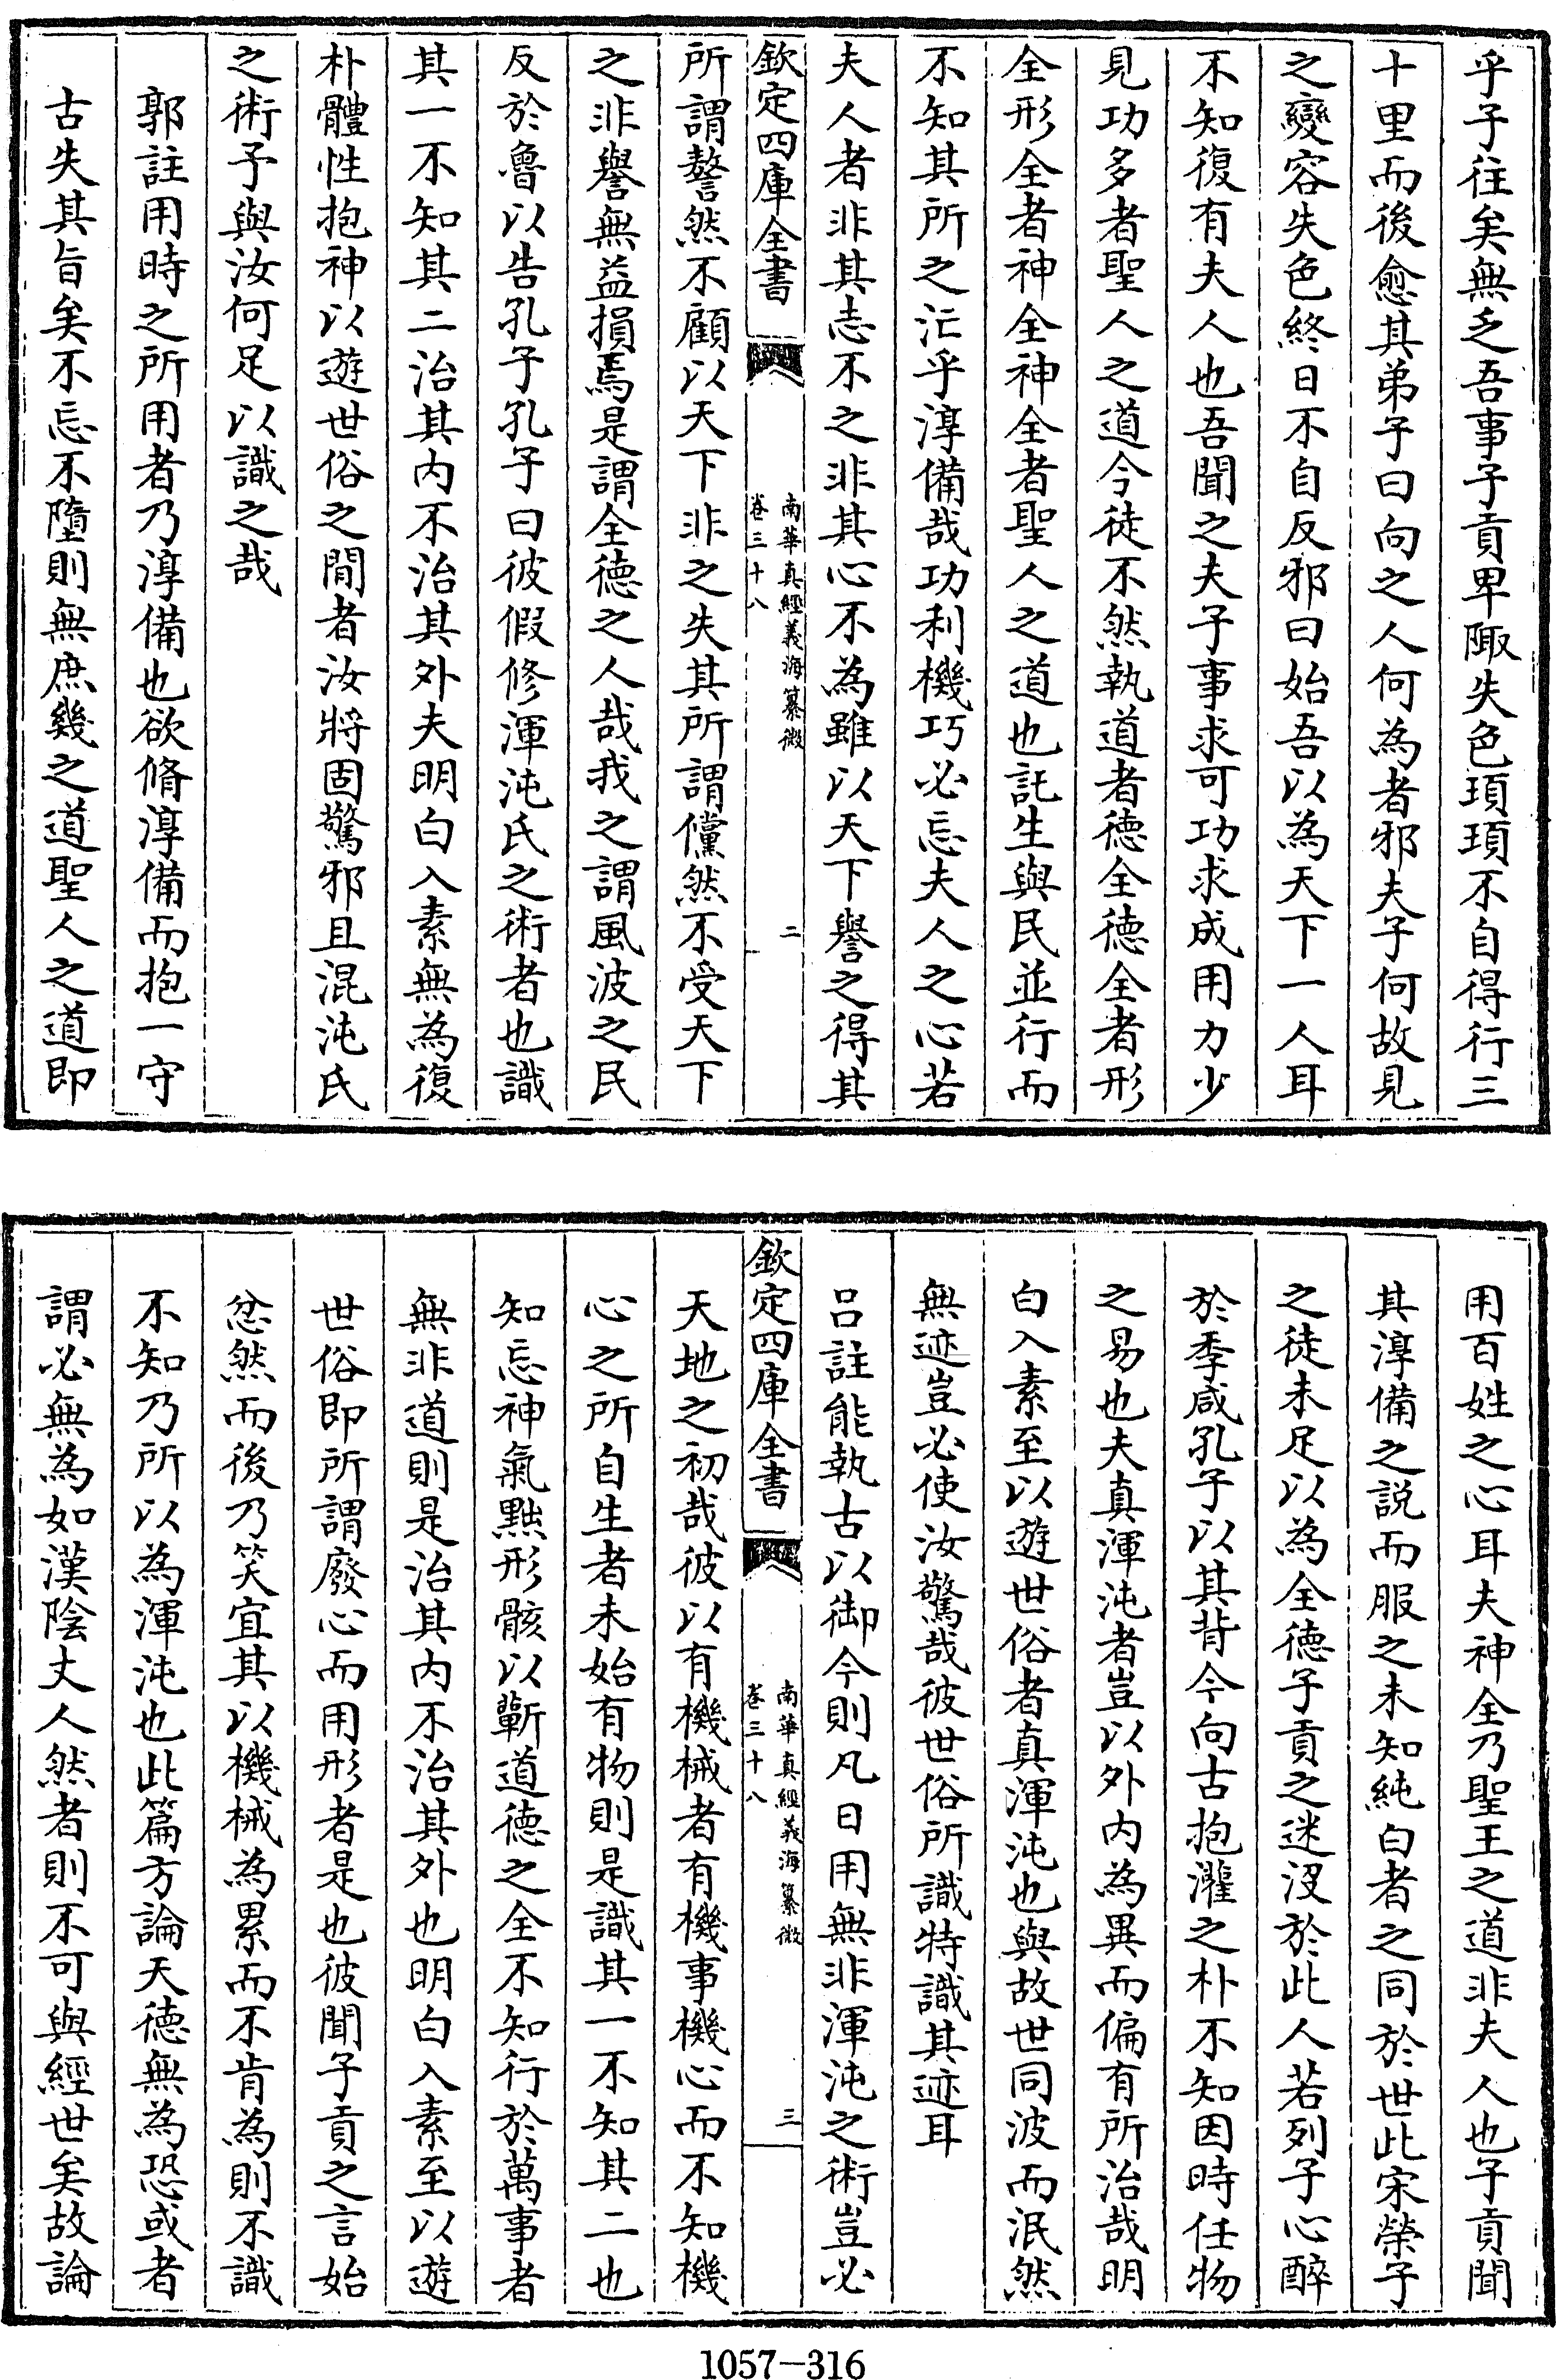 乎子往矣無乏吾事子貢卑陬失色頊頊不自得行三
十里而後愈其弟子曰向之人何為者邪夫子何故見
之變容失色終日不自反邪曰始吾以為天下一人耳
不知復有夫人也吾聞之夫子事求可功求成用力少
見功多者聖人之道今徒不然執道者德全德全者形
全形全者神全神全者聖人之道也託生與民並行而
不知其所之汒乎淳備哉功利機巧必忘夫人之心若
夫人者非其志不之非其心不為雖以天下譽之得其
欽定四庫全書
南華真經義海纂微
卷三十八
二
所謂謷然不顧以天下非之失其所謂儻然不受天下
之非譽無益損焉是謂全德之人哉我之謂風波之民
反於魯以告孔子孔子曰彼假修渾沌氏之術者也識
其一不知其二治其內不治其外夫明白入素無為復
朴體性抱神以遊世俗之間者汝將固驚邪且混沌氏
之術予與汝何足以識之哉
郭註用時之所用者乃淳備也欲脩淳備而抱一守
古失其旨矣不忘不墮則無庶幾之道聖人之道即
用百姓之心耳夫神全乃聖王之道非夫人也子貢聞
其淳備之説而服之未知純白者之同於世此宋榮子
之徒未足以為全德子貢之迷沒於此人若列子心醉
於季咸孔子以其背今向古抱灌之朴不知因時任物
之易也夫真渾沌者豈以外內為異而偏有所治哉明
白入素至以遊世俗者真渾沌也與故世同波而泯然
無迹豈必使汝驚哉彼世俗所識特識其迹耳
呂註能執古以御今則凡日用無非渾沌之術豈必
欽定四庫全書
南華真經義海纂微
卷三十八
三
天地之初哉彼以有機械者有機事機心而不知機
心之所自生者未始有物則是識其一不知其二也
知忘神氣黜形骸以蘄道德之全不知行於萬事者
無非道則是治其內不治其外也明白入素至以遊
世俗即所謂廢心而用形者是也彼聞子貢之言始
忿然而後乃笑宜其以機械為累而不肯為則不識
不知乃所以為渾沌也此篇方論天德無為恐或者
謂必無為如漢陰丈人然者則不可與經世矣故論
1057-316